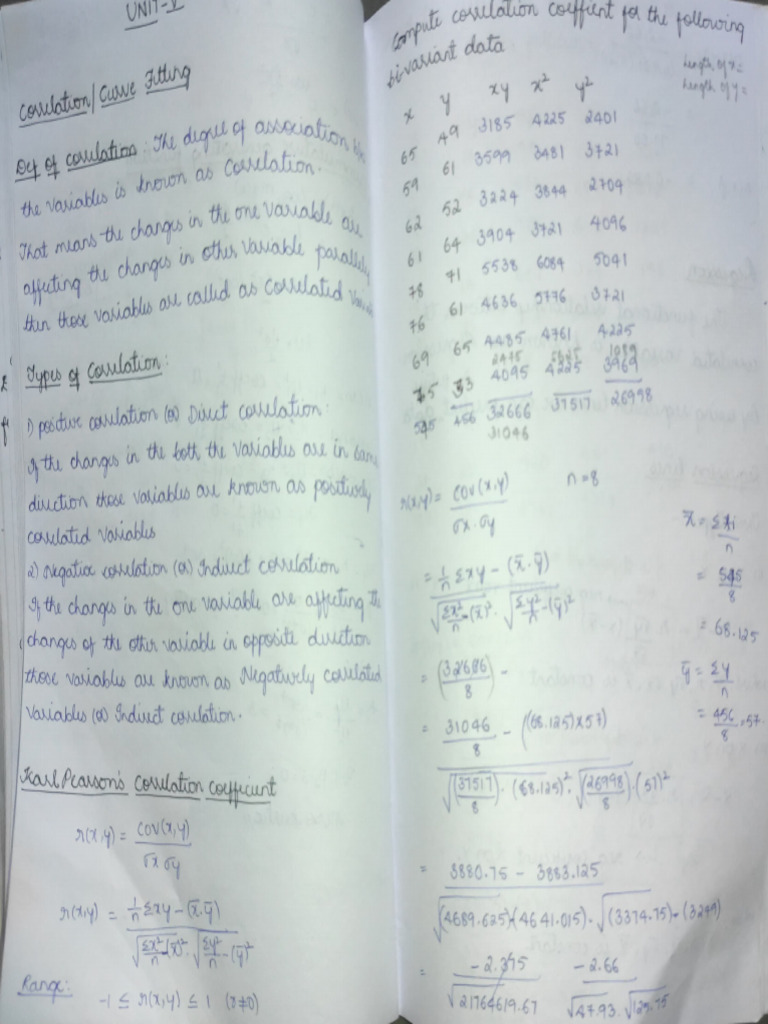 UNIT-V
Correlation/Curve Fitting
Def of correlation: The degree of association b/w
the variables is known as Correlation.
That means the changes in the one variable are
affecting the changes in other variable parallely
then those variables are called as Correlated
Types of Correlation:
1) positive correlation (or) Direct correlation:
If the changes in the both the variables are in same
direction those variables are known as positively
correlated variables
2) Negative correlation (or) Indirect correlation
If the changes in the one variable are affecting the
changes of the other variable in opposite direction
those variables are known as Negatively correlated
variables (or) Indirect correlation.
Karl Pearson's Correlation coefficient
r(x,y) = cov(x,y) / σx σy
r(x,y) = 1/n Σxy - (x̄.ȳ) / √Σx²/n-(x̄)² . √Σy²/n-(ȳ)²
Range:
-1 ≤ r(x,y) ≤ 1 (r≠0)
Compute correlation coefficient for the following
bivariant data
length of x =
length of y =
x y xy x² y²
65 49 3185 4225 2401
59 61 3599 3481 3721
62 52 3224 3844 2704
61 64 3904 3721 4096
78 71 5538 6084 5041
76 61 4636 5776 3721
69 65 4485 4761 4225
2475 5625 1089
75 33 4095 4225 3969
545 456 32666 37517 26998
31046
r(x,y) = cov(x,y) / σx.σy n=8
x̄ = Σxi / n
= 1/n Σxy - (x̄.ȳ) / √Σx²/n-(x̄)² . √Σy²/n-(ȳ)²
= 545 / 8
= 68.125
= (32686 / 8) -
ȳ = Σy / n
= 456 / 8 = 57.
= 31046 / 8 - ((68.125)x57)
√(37517)/8 - (68.125)² . √(26998)/8 - (57)²
= 3880.75 - 3883.125
√(4689.625)-(4641.015) . √(3374.75)-(3249)
= -2.375 / √21764619.67 -2.66 / √47.93 . √125.75